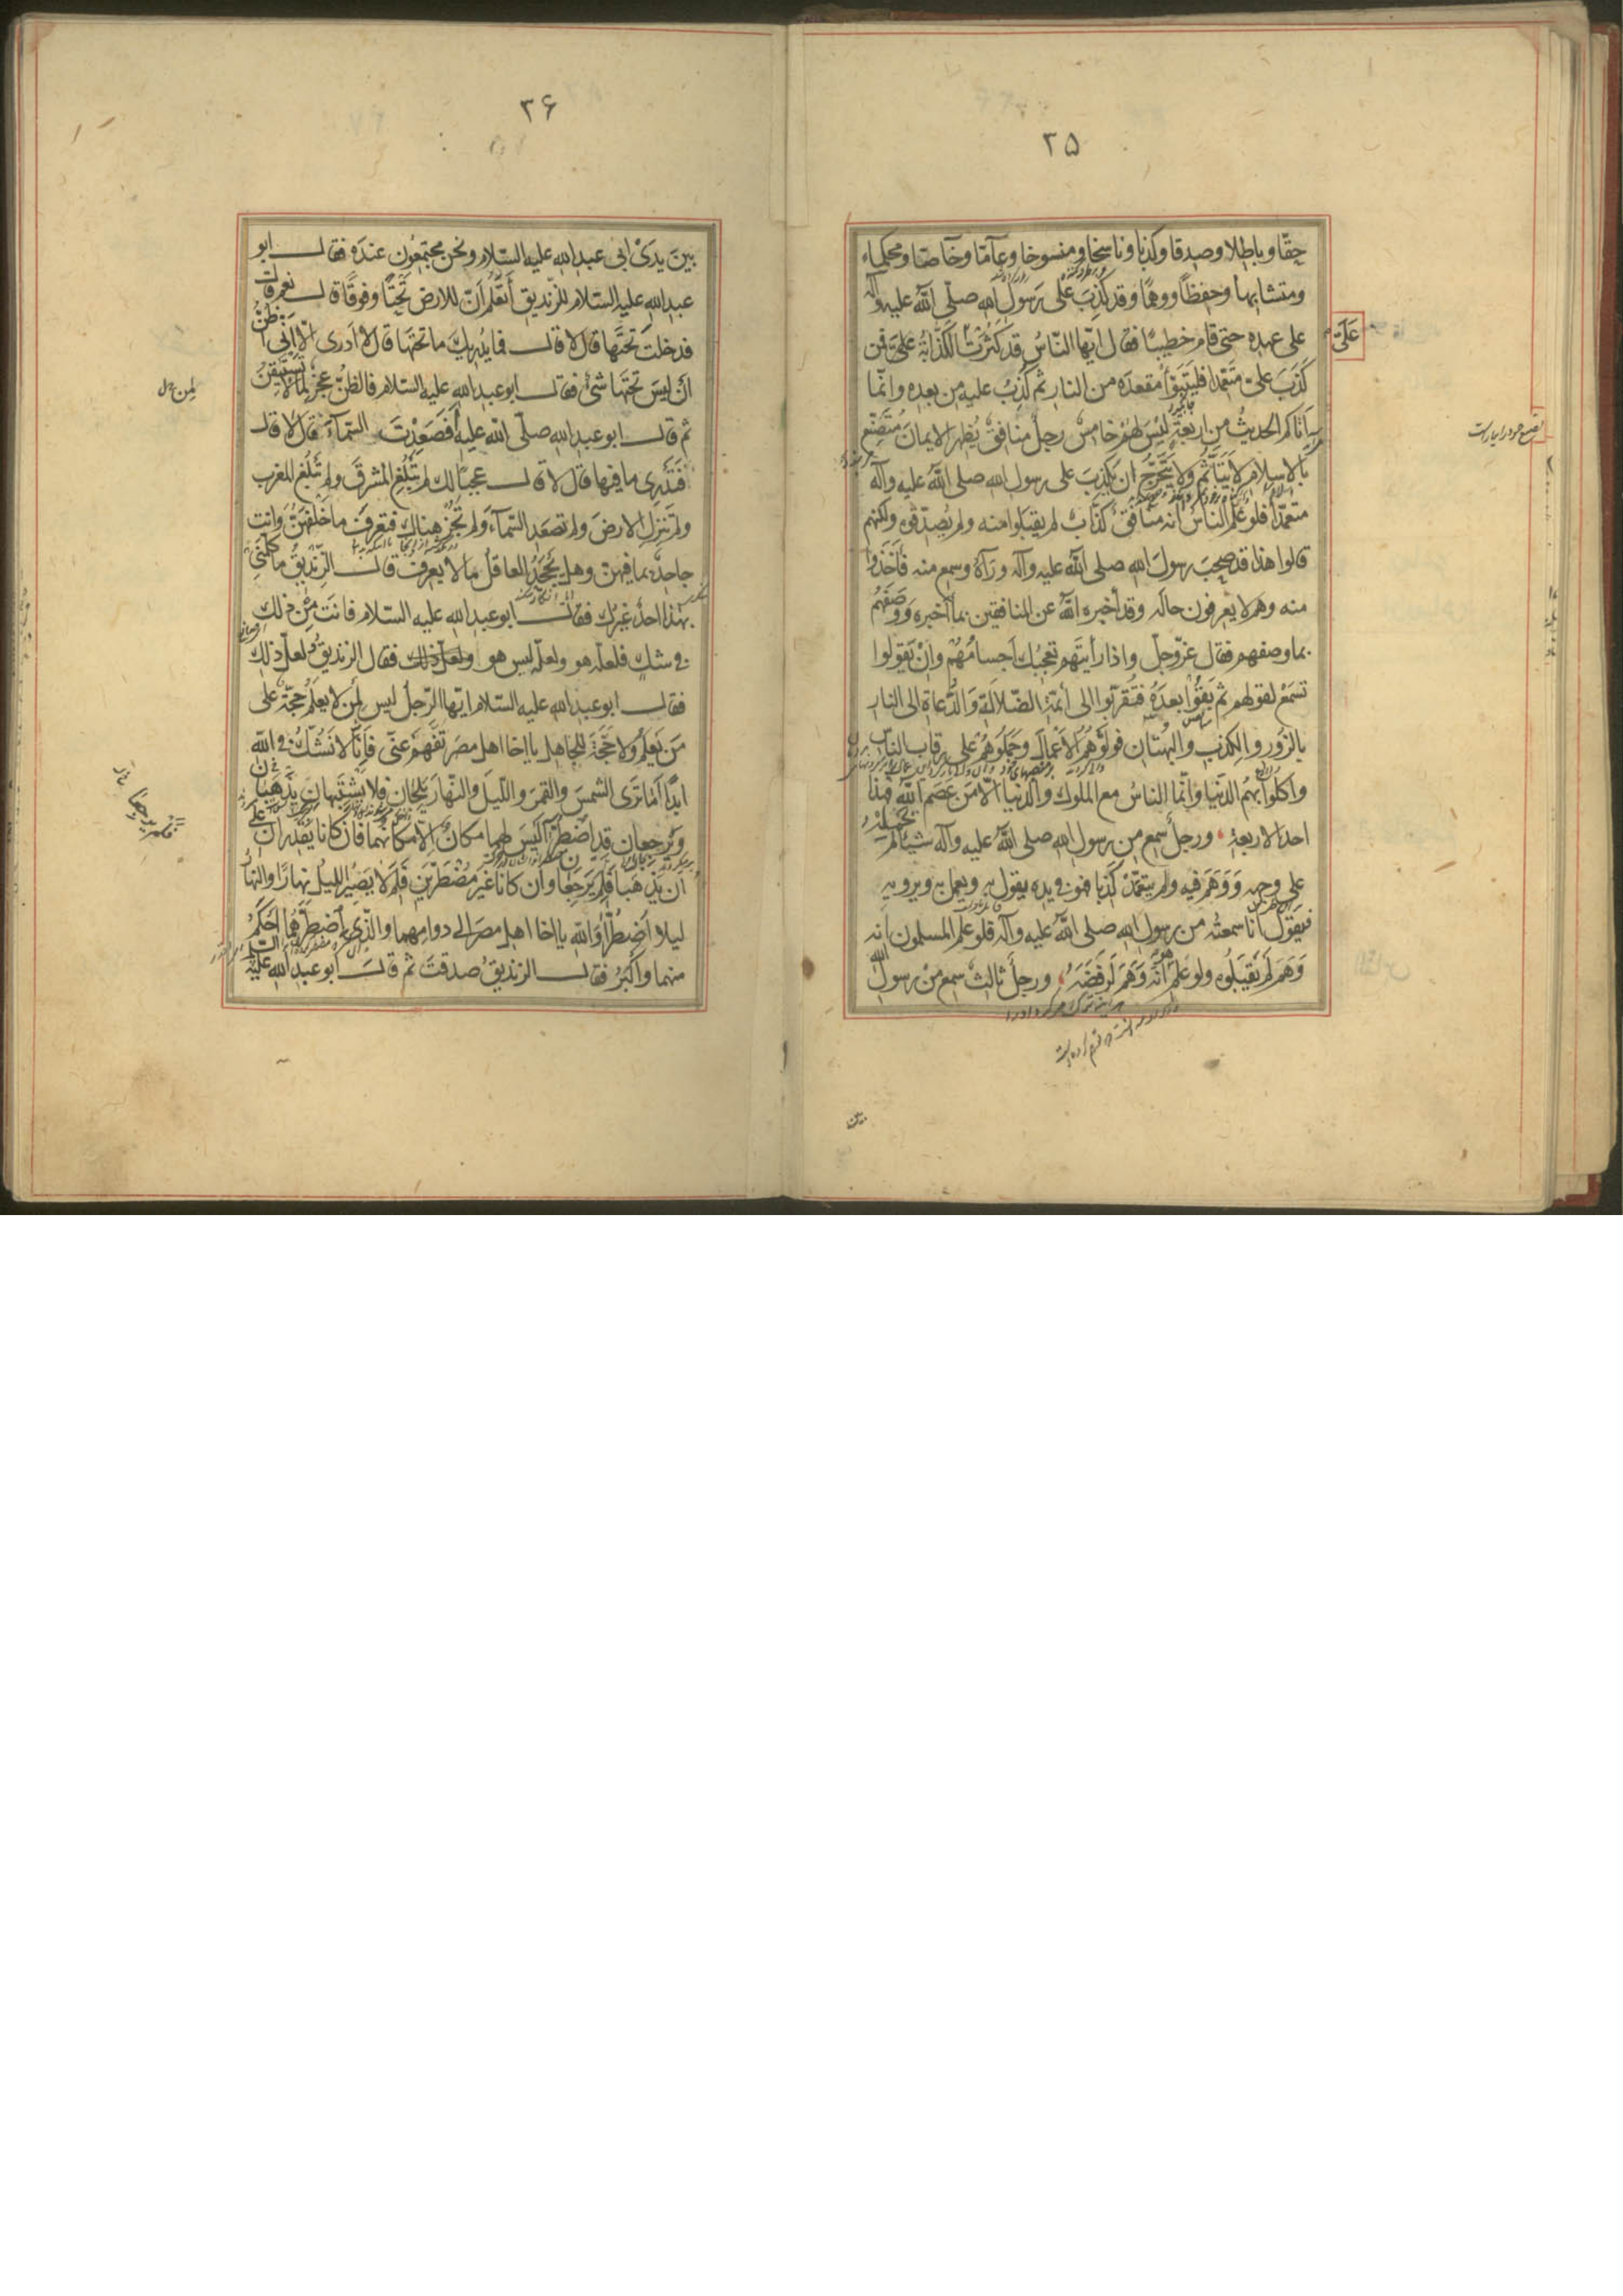 ۳۵
حقّا وباطلا وصدقا وكذبا وناسخا ومنسوخا وعامّا وخاصّا ومحكما
ومتشابها وحفظًا ووهمًا وقد كُذِبَ على رسول الله صلّى الله عليه وآله
على عهده حتى قام خطيبًا فقال ايّها النّاسُ قد كَثُرَتْ الكَذّابَةُ عَلَيَّ فمن
عَلَيَّ
كَذَبَ عليّ متعمّدا فليتبوّأ مقعدَه من النار ثم كُذِبَ عليه من بعده وانّما
اَتاكم الحديثُ من اربعةٍ ليسَ لهم خامس رجلٌ منافقٌ يُظهر الايمانَ متصنّع
بالاسلام لا يتأثّم ولا يتحرّج ان يكذبَ على رسول الله صلى الله عليه وآله
متعمّدًا فلو علم الناسُ انه منافقٌ كذّابٌ لم يقبلوا منه ولم يُصدّقوه ولكنهم
قالوا هذا قد صحِبَ رسولَ الله صلى الله عليه وآله ورآهُ وسمع منه فأخذوا
منه وهم لا يعرفون حاله وقد أخبره اللهُ عن المنافقين بما أخبره ووَصَفَهُم
بما وصفهم فقال عزّ وجلّ واذا رأيتَهم تعجبك أجسامُهُم وإنْ يَقولوا
تسمَعْ لقولهم ثم بَقُوا بعدَهُ فتقرّبوا الى أئمّة الضّلالة والدُّعاة الى النار
بالزّور والكذب والبُهتان فولّوهُم الأعْمالَ وحَمَلُوهُم على رقاب الناس
واكلوا بهم الدّنيا وانّما الناسُ مع الملوك والدنيا الّا من عَصَم الله فهذا
احد الاربعة ورجلٌ سمع من رسول الله صلى الله عليه وآله شيئًا لم يحمله
على وجهه وَوَهَمَ فيه ولم يتعمّد كَذِبا فهو في يده يقول به ويعمل به ويرويه
فيقول أنا سمعتُه من رسول الله صلى الله عليه وآله فلو علم المسلمون انه
وَهَمَ لم يَقبلوه ولو عَلِمَ هو أنّه وَهَمَ لَرَفَضَهُ ورجل ثالث سمع من رسول الله
بين
۳۶
بين يدَىْ ابى عبد الله عليه السّلام ونحن مجتمعون عنده فقال ابو
عبد الله عليه السّلام للزنديق أتعلم انّ للارض تَحْتًا وفوقًا قال نعم قال
فدخلت تحتَها قال لا قال فما يُدريك ما تحتها قال لا أدرى الّا اَنّى أظنّ
أنْ ليسَ تحتها شئ فقال ابو عبد الله عليه السّلام فالظنّ عجز لما لا تستيقنُ
ثم قال ابو عبد الله صلّى الله عليه أفصَعِدْتَ السّمآءَ قال لا قال
فتدرى ما فيها قال لا قال عجبًا لك لم تبلُغ المشرقَ ولم تبلُغ المغرب
ولم تنزلِ الارضَ ولم تصعَد السّمآءَ ولم تجُز هناك فتعرفَ ما خلفهنّ وانت
جاحدٌ بما فيهنّ وهل يجحَدُ العاقل ما لا يعرف قال الزّنديقُ ما كلّمنى
بهذا احدٌ غيرُك فقال ابو عبد الله عليه السلام فانتَ من ذلك
فى شكٍّ فلعلّه هو ولعلّه ليس هو فقال الزنديق ولعلّ ذلك
فقال ابو عبد الله عليه السّلام ايّها الرّجل ليس لمن لا يعلَم حجّة على
مَن يَعلَم ولا حجّة للجاهل يا اخا اهل مصر تفهّم عنّى فإنّا لا نشكّ فى الله
ابدًا أما ترى الشمسَ والقمرَ واللّيلَ والنّهارَ يَلِجَانِ فلا يشتبهان يذهبان
ويرجعان قد اضطُرّا ليس لهما مكانٌ الّا مكانهما فان كانا يقدران على
أن يذهبا فلِمَ يرجعان وان كانا غيرَ مضطرّين فلِمَ لا يصيرُ الليلُ نهارًا والنهارُ
ليلا اُضطُرّا والله يا اخا اهل مصر الى دوامهما والّذى اضطرّهما أحكَمُ
منهما واكبرُ فقال الزنديقُ صدقتَ ثم قال ابو عبد الله عليه السلام